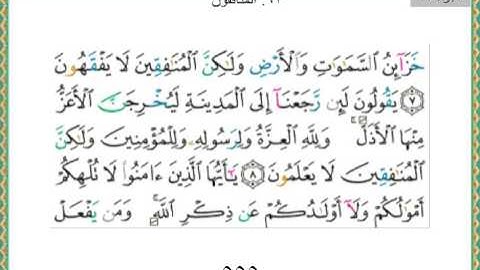 ٦٣. المنافقون
خَزَآئِنُ السَّمَٰوَٰتِ وَالْأَرْضِ وَلَٰكِنَّ الْمُنَٰفِقِينَ لَا يَفْقَهُونَ
﴿٧﴾ يَقُولُونَ لَئِن رَّجَعْنَآ إِلَى الْمَدِينَةِ لَيُخْرِجَنَّ الْأَعَزُّ
مِنْهَا الْأَذَلَّ ۚ وَلِلَّهِ الْعِزَّةُ وَلِرَسُولِهِۦ وَلِلْمُؤْمِنِينَ وَلَٰكِنَّ
الْمُنَٰفِقِينَ لَا يَعْلَمُونَ ﴿٨﴾ يَٰٓأَيُّهَا الَّذِينَ ءَامَنُوا۟ لَا تُلْهِكُمْ
أَمْوَٰلُكُمْ وَلَآ أَوْلَٰدُكُمْ عَن ذِكْرِ اللَّهِ ۚ وَمَن يَفْعَلْ